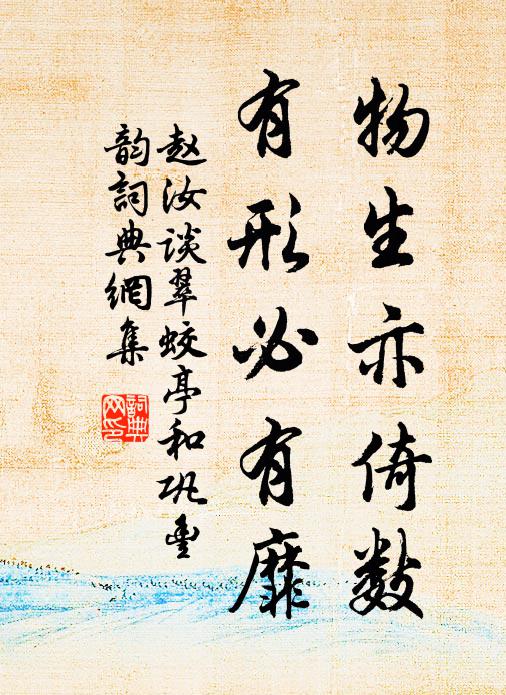 物生亦倚数
有形必有靡
赵汝谈翠蛟亭和巩丰
韵詞典網集
詞典網印